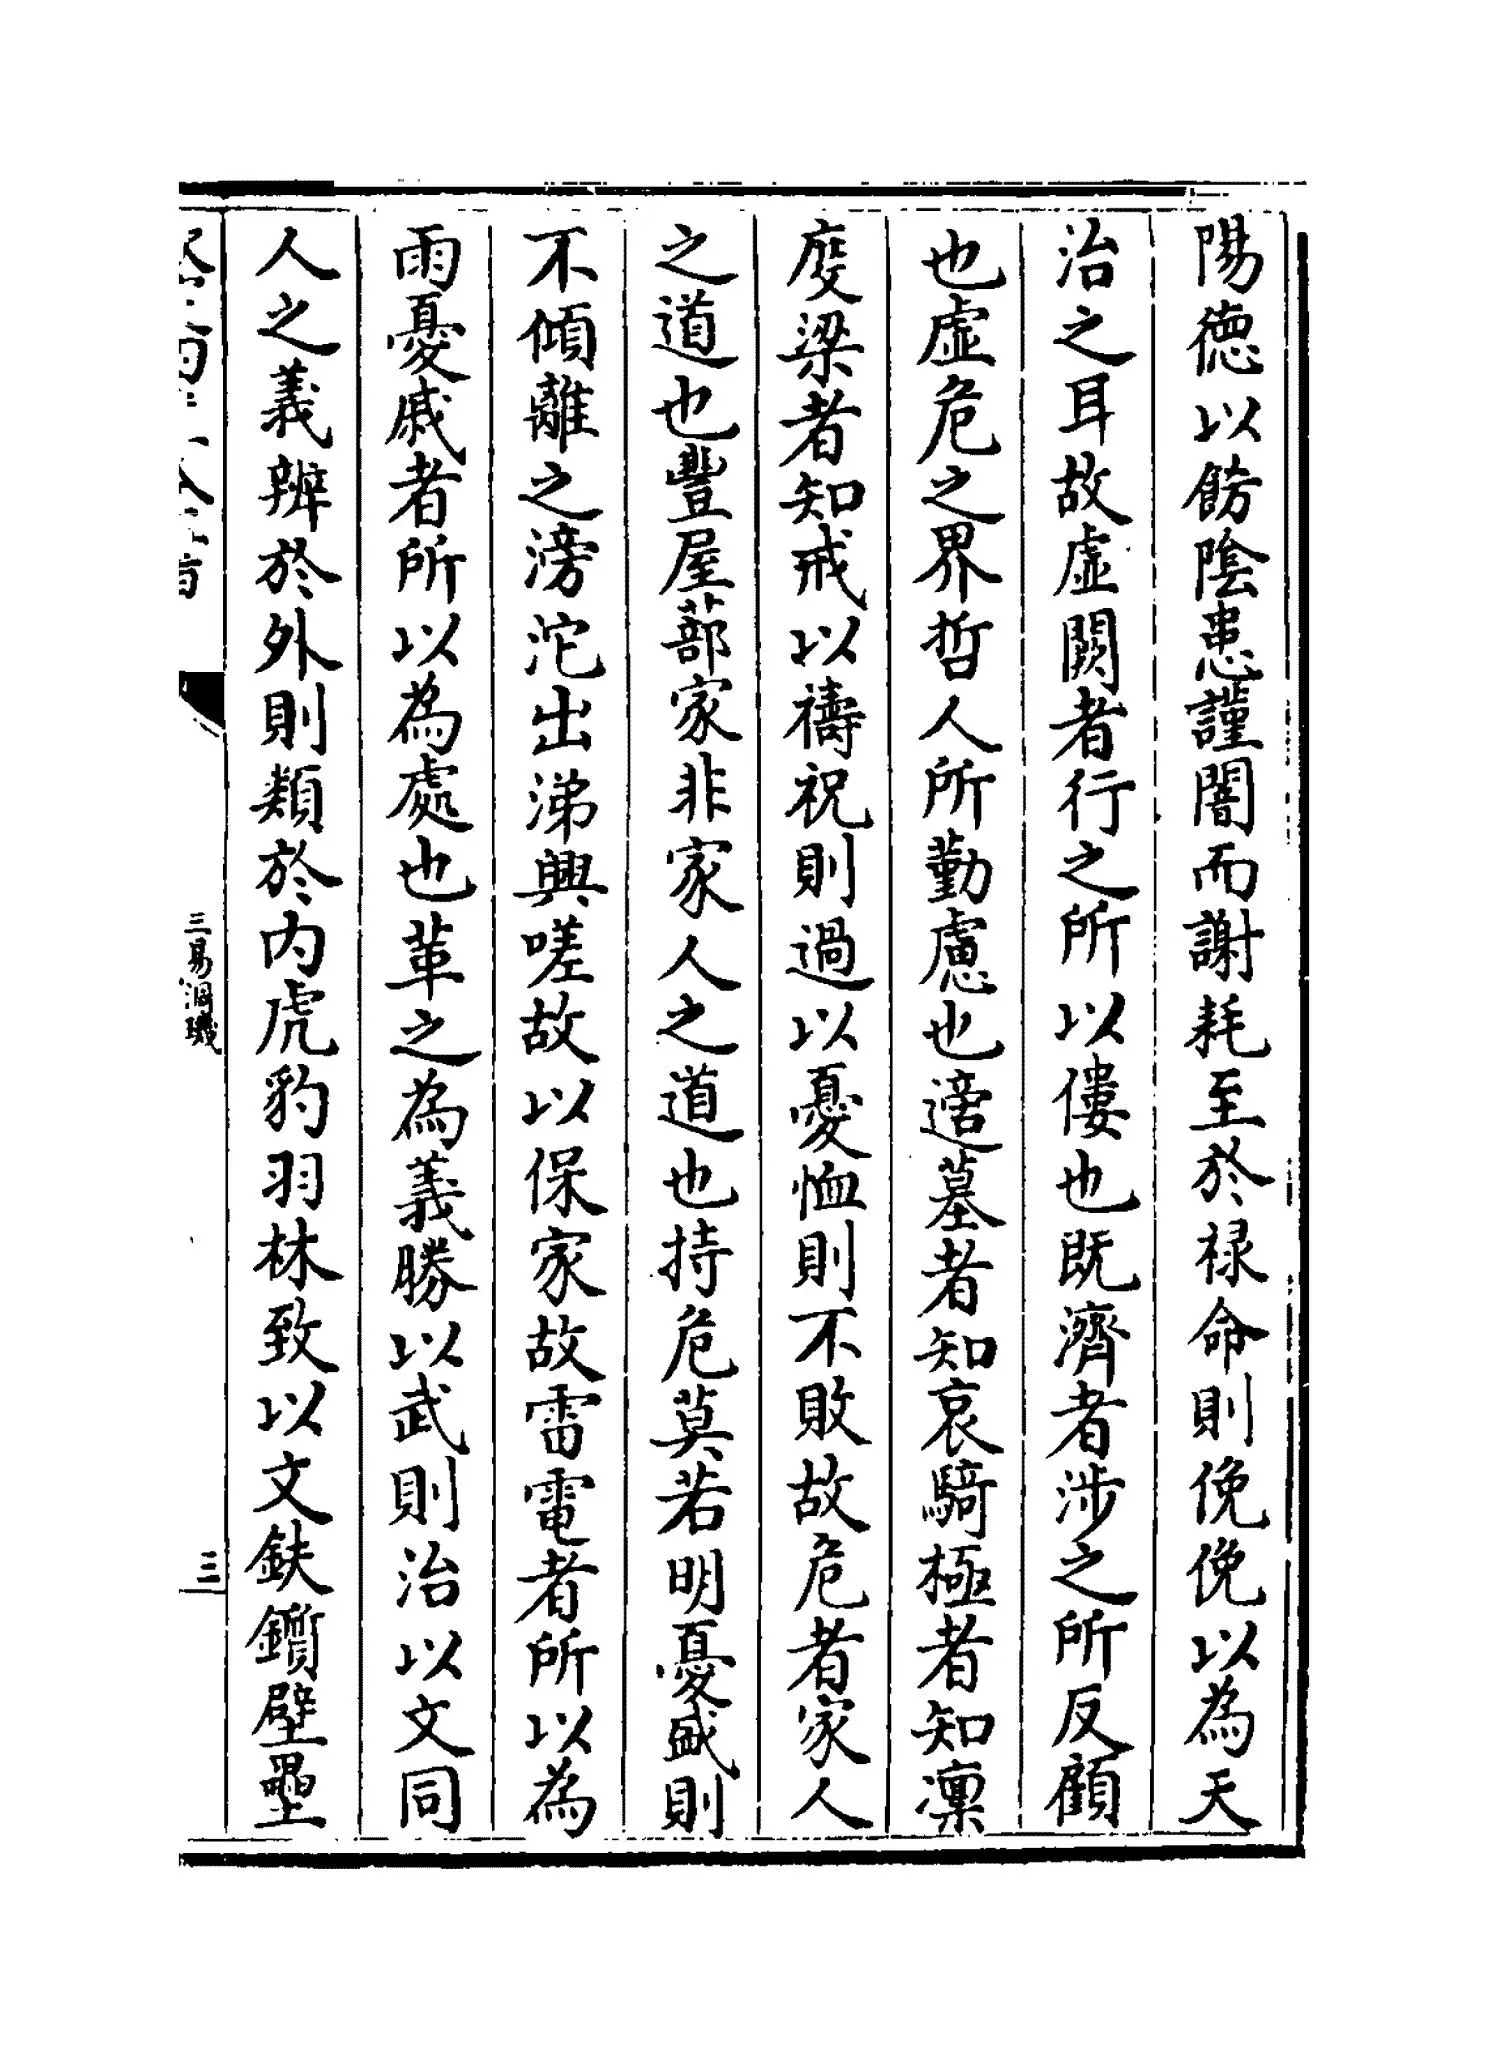 陽德以飭陰患謹闇而謝耗至於禄命則俛俛以為天
治之耳故虚闕者行之所以僂也既濟者涉之所反顧
也虚危之界哲人所勤慮也遶墓者知哀騎極者知凜
庪梁者知戒以禱祝則過以憂恤則不敗故危者家人
之道也豐屋蔀家非家人之道也持危莫若明憂盛則
不傾離之滂沱出涕興嗟故以保家故雷電者所以為
雨憂戚者所以為處也革之為義勝以武則治以文同
人之義辨於外則類於内虎豹羽林致以文鈇鑕壁壘
三易洞璣
三